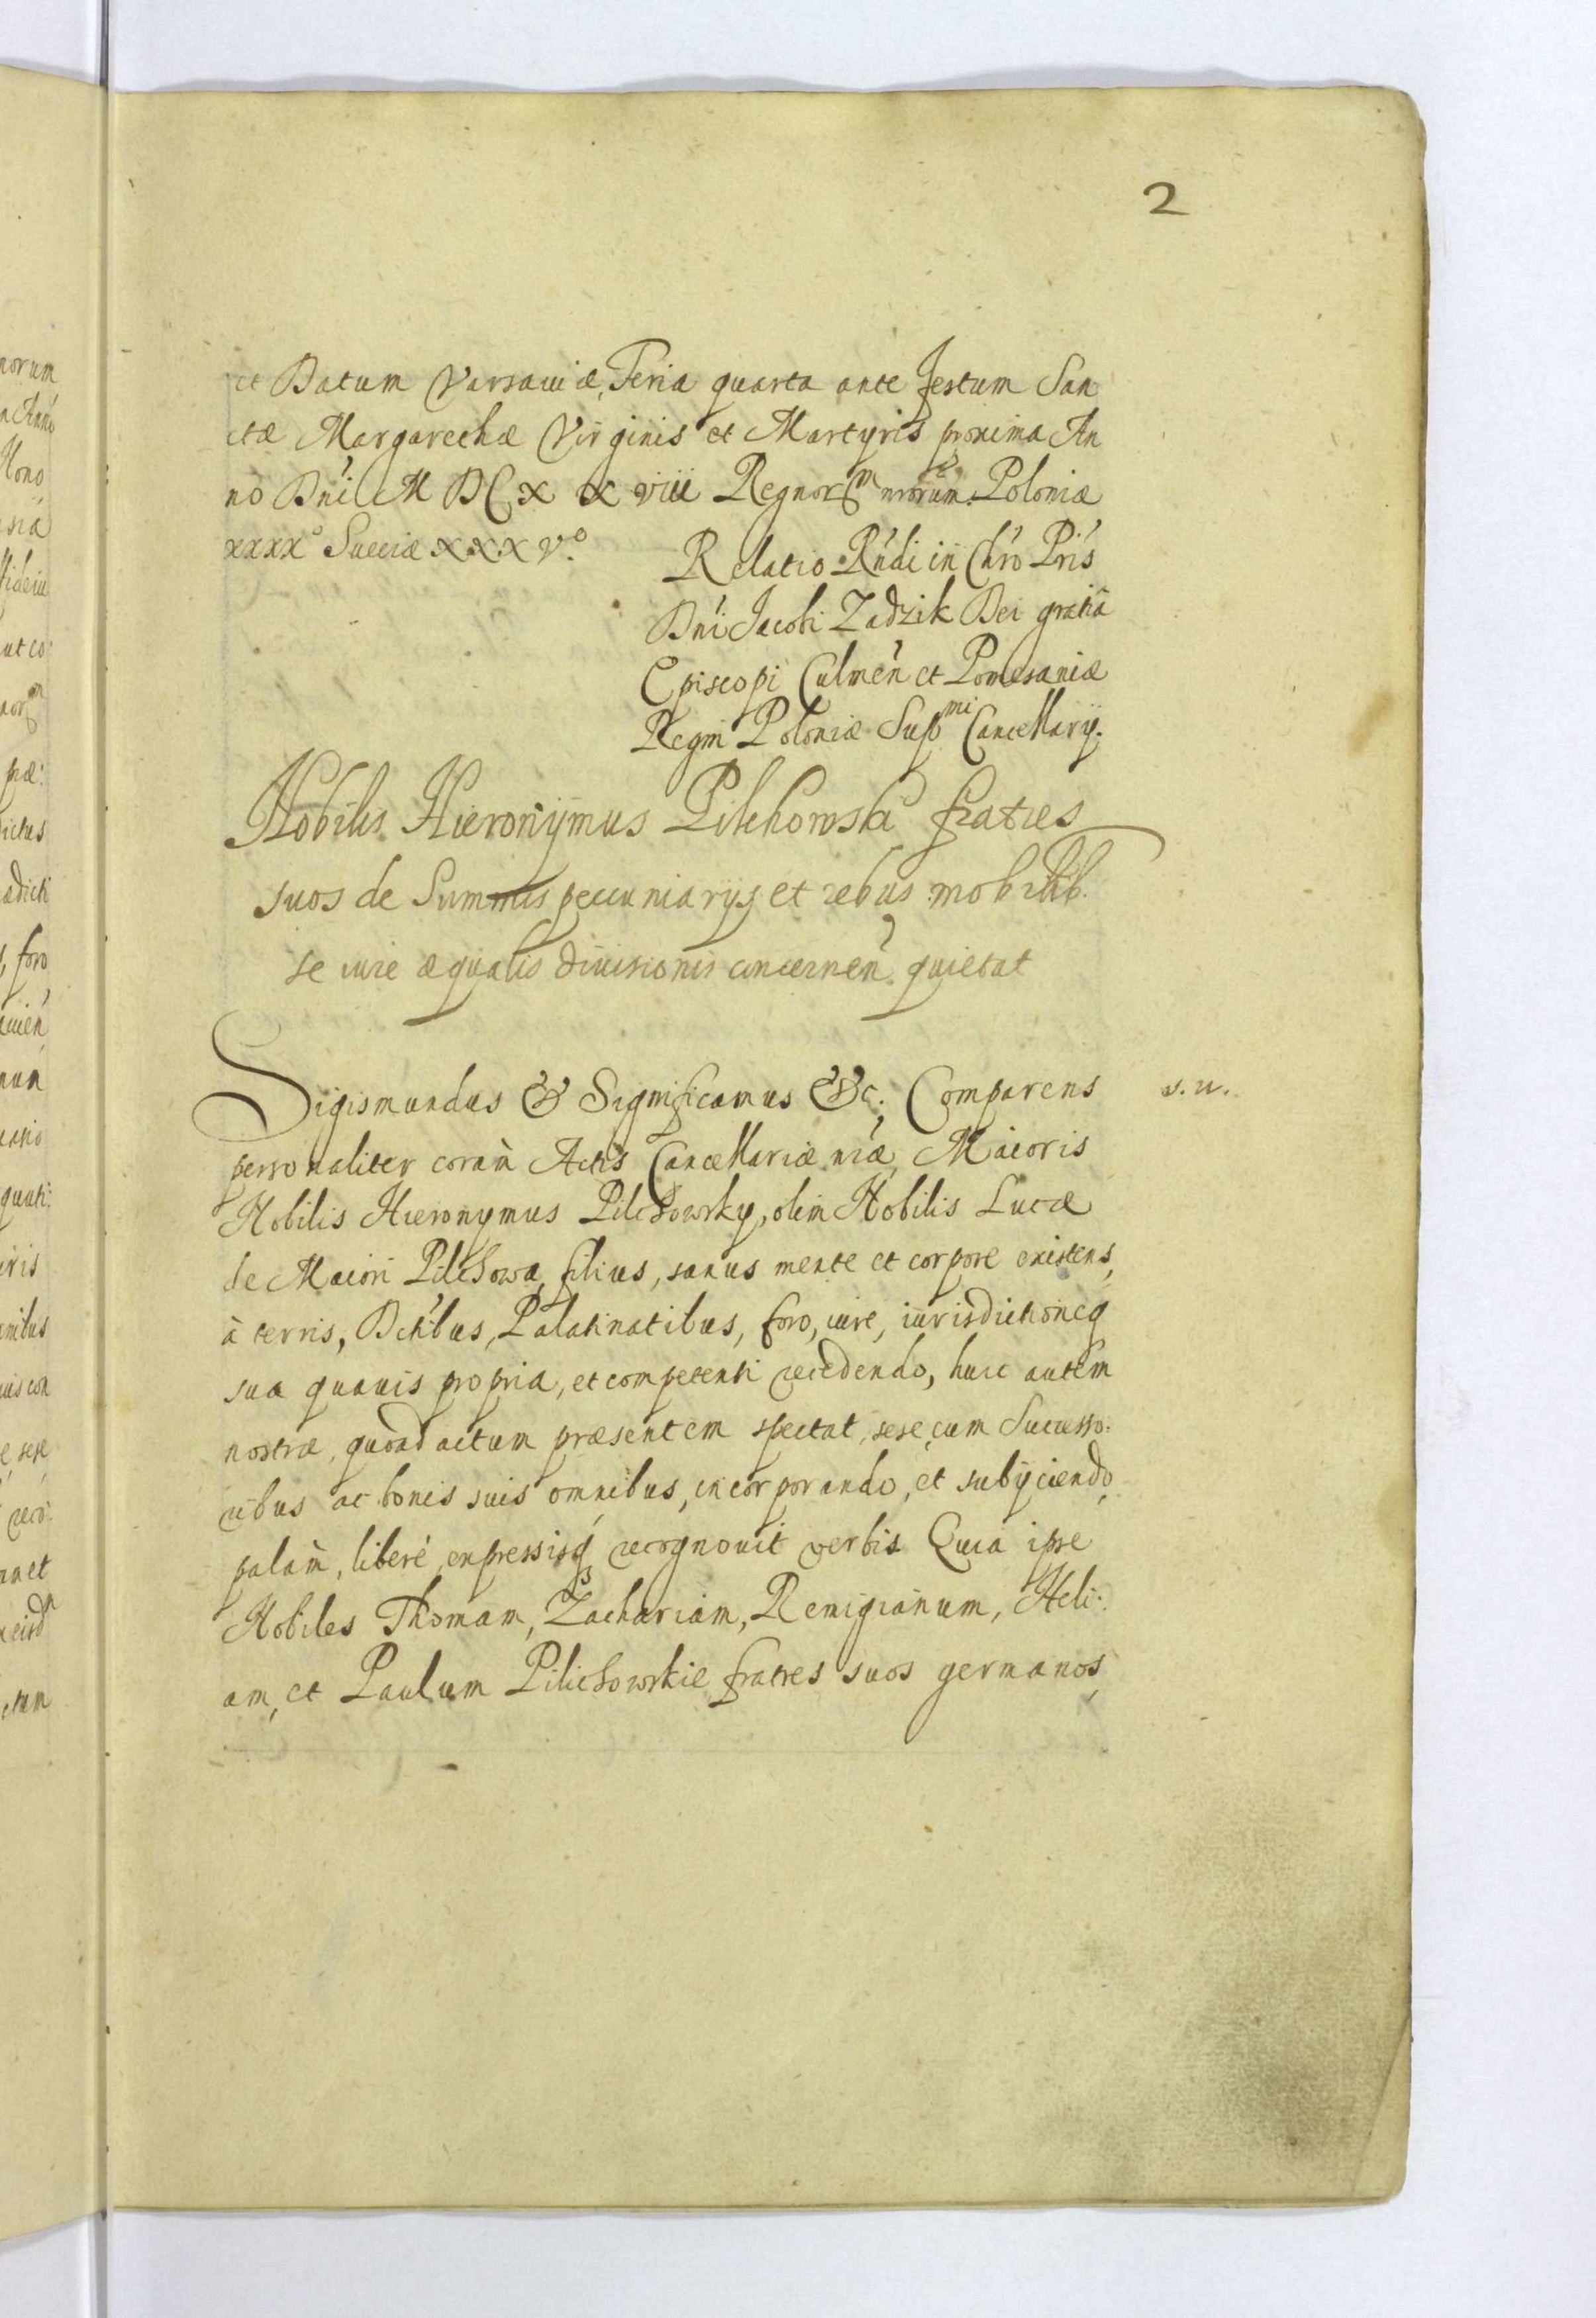 2
et Datum Varsauiæ, Feria quarta ante festum San
ctæ Margarethæ Virginis et Martyris proxima An
no Dn̄i M DC X X viii Regnor̄m nr̄orum Poloniæ
xxxx° Sueciæ XXX V°.
Relatio Rn̄di in Chr̄o Pr̄is
Dn̄i Jacobi Zadzik Dei gratia
Episcopi Culmen̄ et Pomesaniæ
Regni Poloniæ Sup^mi Cancellarij.
Nobilis Hieronÿmus Pilchowski fratres
suos de Summis pecuniarijs et rebus mobilib.
se iure æqualis diuisionis concernen̄ quietat
Sigismundus & Significamus &c. Comparens
s. n.
personaliter coram Actis Cancellariæ nr̄æ Maioris
Nobilis Hieronymus Pilichowsky, olim Nobilis Lucæ
de Maiori Pilichowa, filius, sanus mente et corpore existens,
à terris, Dctibus, Palatinatibus, foro, iure, iurisdictioneq
sua quauis propria, et competenti recedendo, huic autem
nostræ, quoad actum præsentem spectat, sese, cum Successo:
ribus ac bonis suis omnibus, incorporando, et subijciendo,
palam, liberè, expressisq recognouit verbis Quia ipse
Nobiles Thomam, Zachariam, Remigianum, Heli:
am, et Paulum Pilichowskie fratres suos germanos,